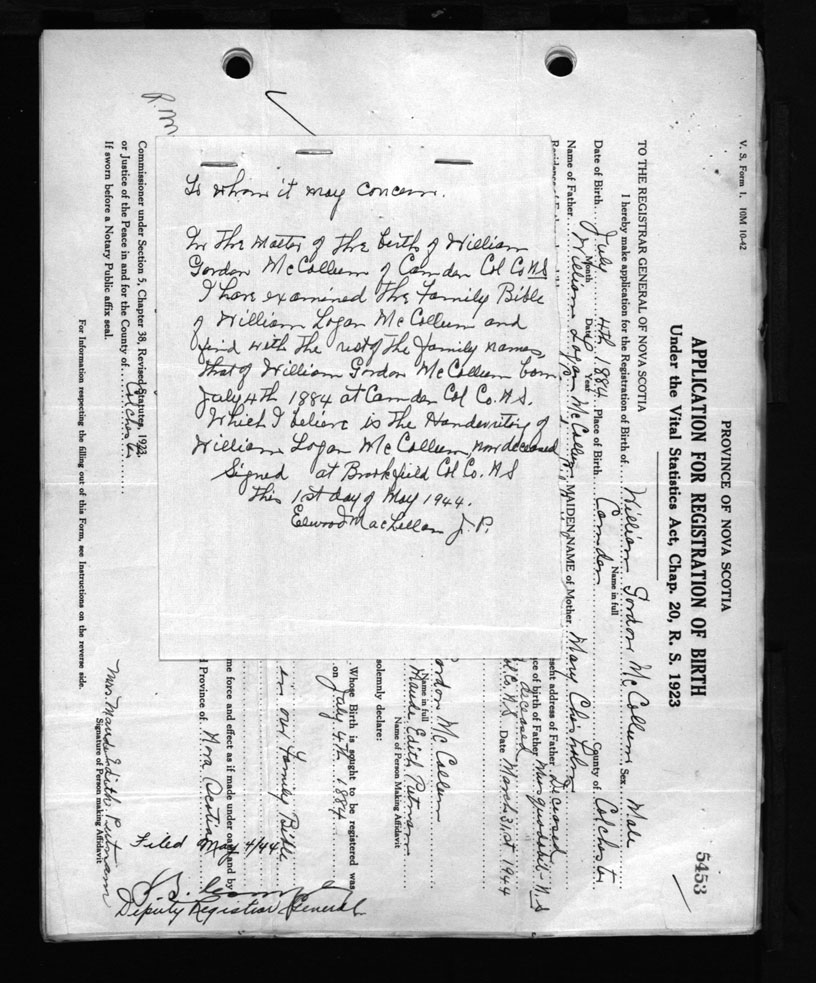 V. S. Form 1. 10M 10-42
PROVINCE OF NOVA SCOTIA
APPLICATION FOR REGISTRATION OF BIRTH
Under the Vital Statistics Act, Chap. 20, R. S. 1923
5453
TO THE REGISTRAR GENERAL OF NOVA SCOTIA
I hereby make application for the Registration of Birth of William Gordon McCollum Sex Male
Name in full
Date of Birth July 4th 1884 Place of Birth Camden County of Colchester
Month Date Year
Name of Father William Logan McCollum MAIDEN NAME of Mother Mary Chisholm
esent address of Father Deceased
ce of birth of Father Musquodobit N.S
deceased
Col. Co. N.S Date March 31st 1944
Gordon McCollum
Name in full
Maude Edith Putnam
Name of Person Making Affidavit
solemnly declare:
Whose Birth is sought to be registered was
on July 4th 1884
in our Family Bible
me force and effect as if made under oath and by
d Province of Nova Scotia
Filed May 4/44
Deputy Registrar General
Mrs. Maude Edith Putnam
Signature of Person making Affidavit
R.M
Commissioner under Section 5, Chapter 38, Revised Statutes, 1923.
or Justice of the Peace in and for the County of Colchester
If sworn before a Notary Public affix seal.
For Information respecting the filling out of this Form, see Instructions on the reverse side.
To whom it may Concern.
In the Matter of the birth of William
Gordon McCollum of Camden Col Co NS
I have examined the Family Bible
of William Logan McCollum and
find with the rest of the Family names
that of William Gordon McCollum born
July 4th 1884 at Camden Col Co. N.S.
Which I believe is the Handwriting of
William Logan McCollum, now deceased
Signed at Brookfield Col Co. NS
This 1st day of May 1944.
Elwood MacLellan J.P.